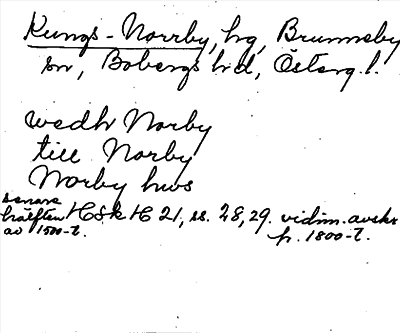 Kungs-Norrby, hg, Brunneby
sn, Bobergs hd, Österg. l.
wedh Norby
till Norby
Norby hws
senare
hälften HSk H 21, ss. 28, 29. vidim. avskr
av 1500-t. fr. 1800-t.